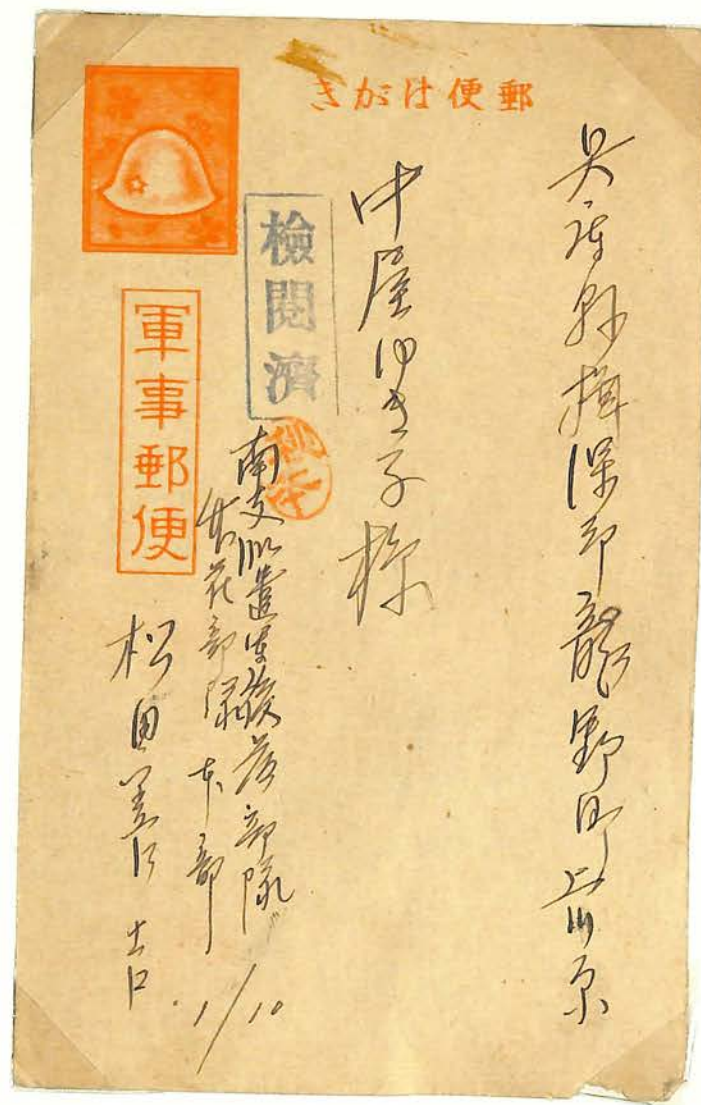 郵便はがき
兵庫縣揖保郡龍野町上川原
中屋ゆき子様
檢閲濟
軍事郵便
南支派遣軍後藤部隊
花部隊本部
松田善吉
1/10